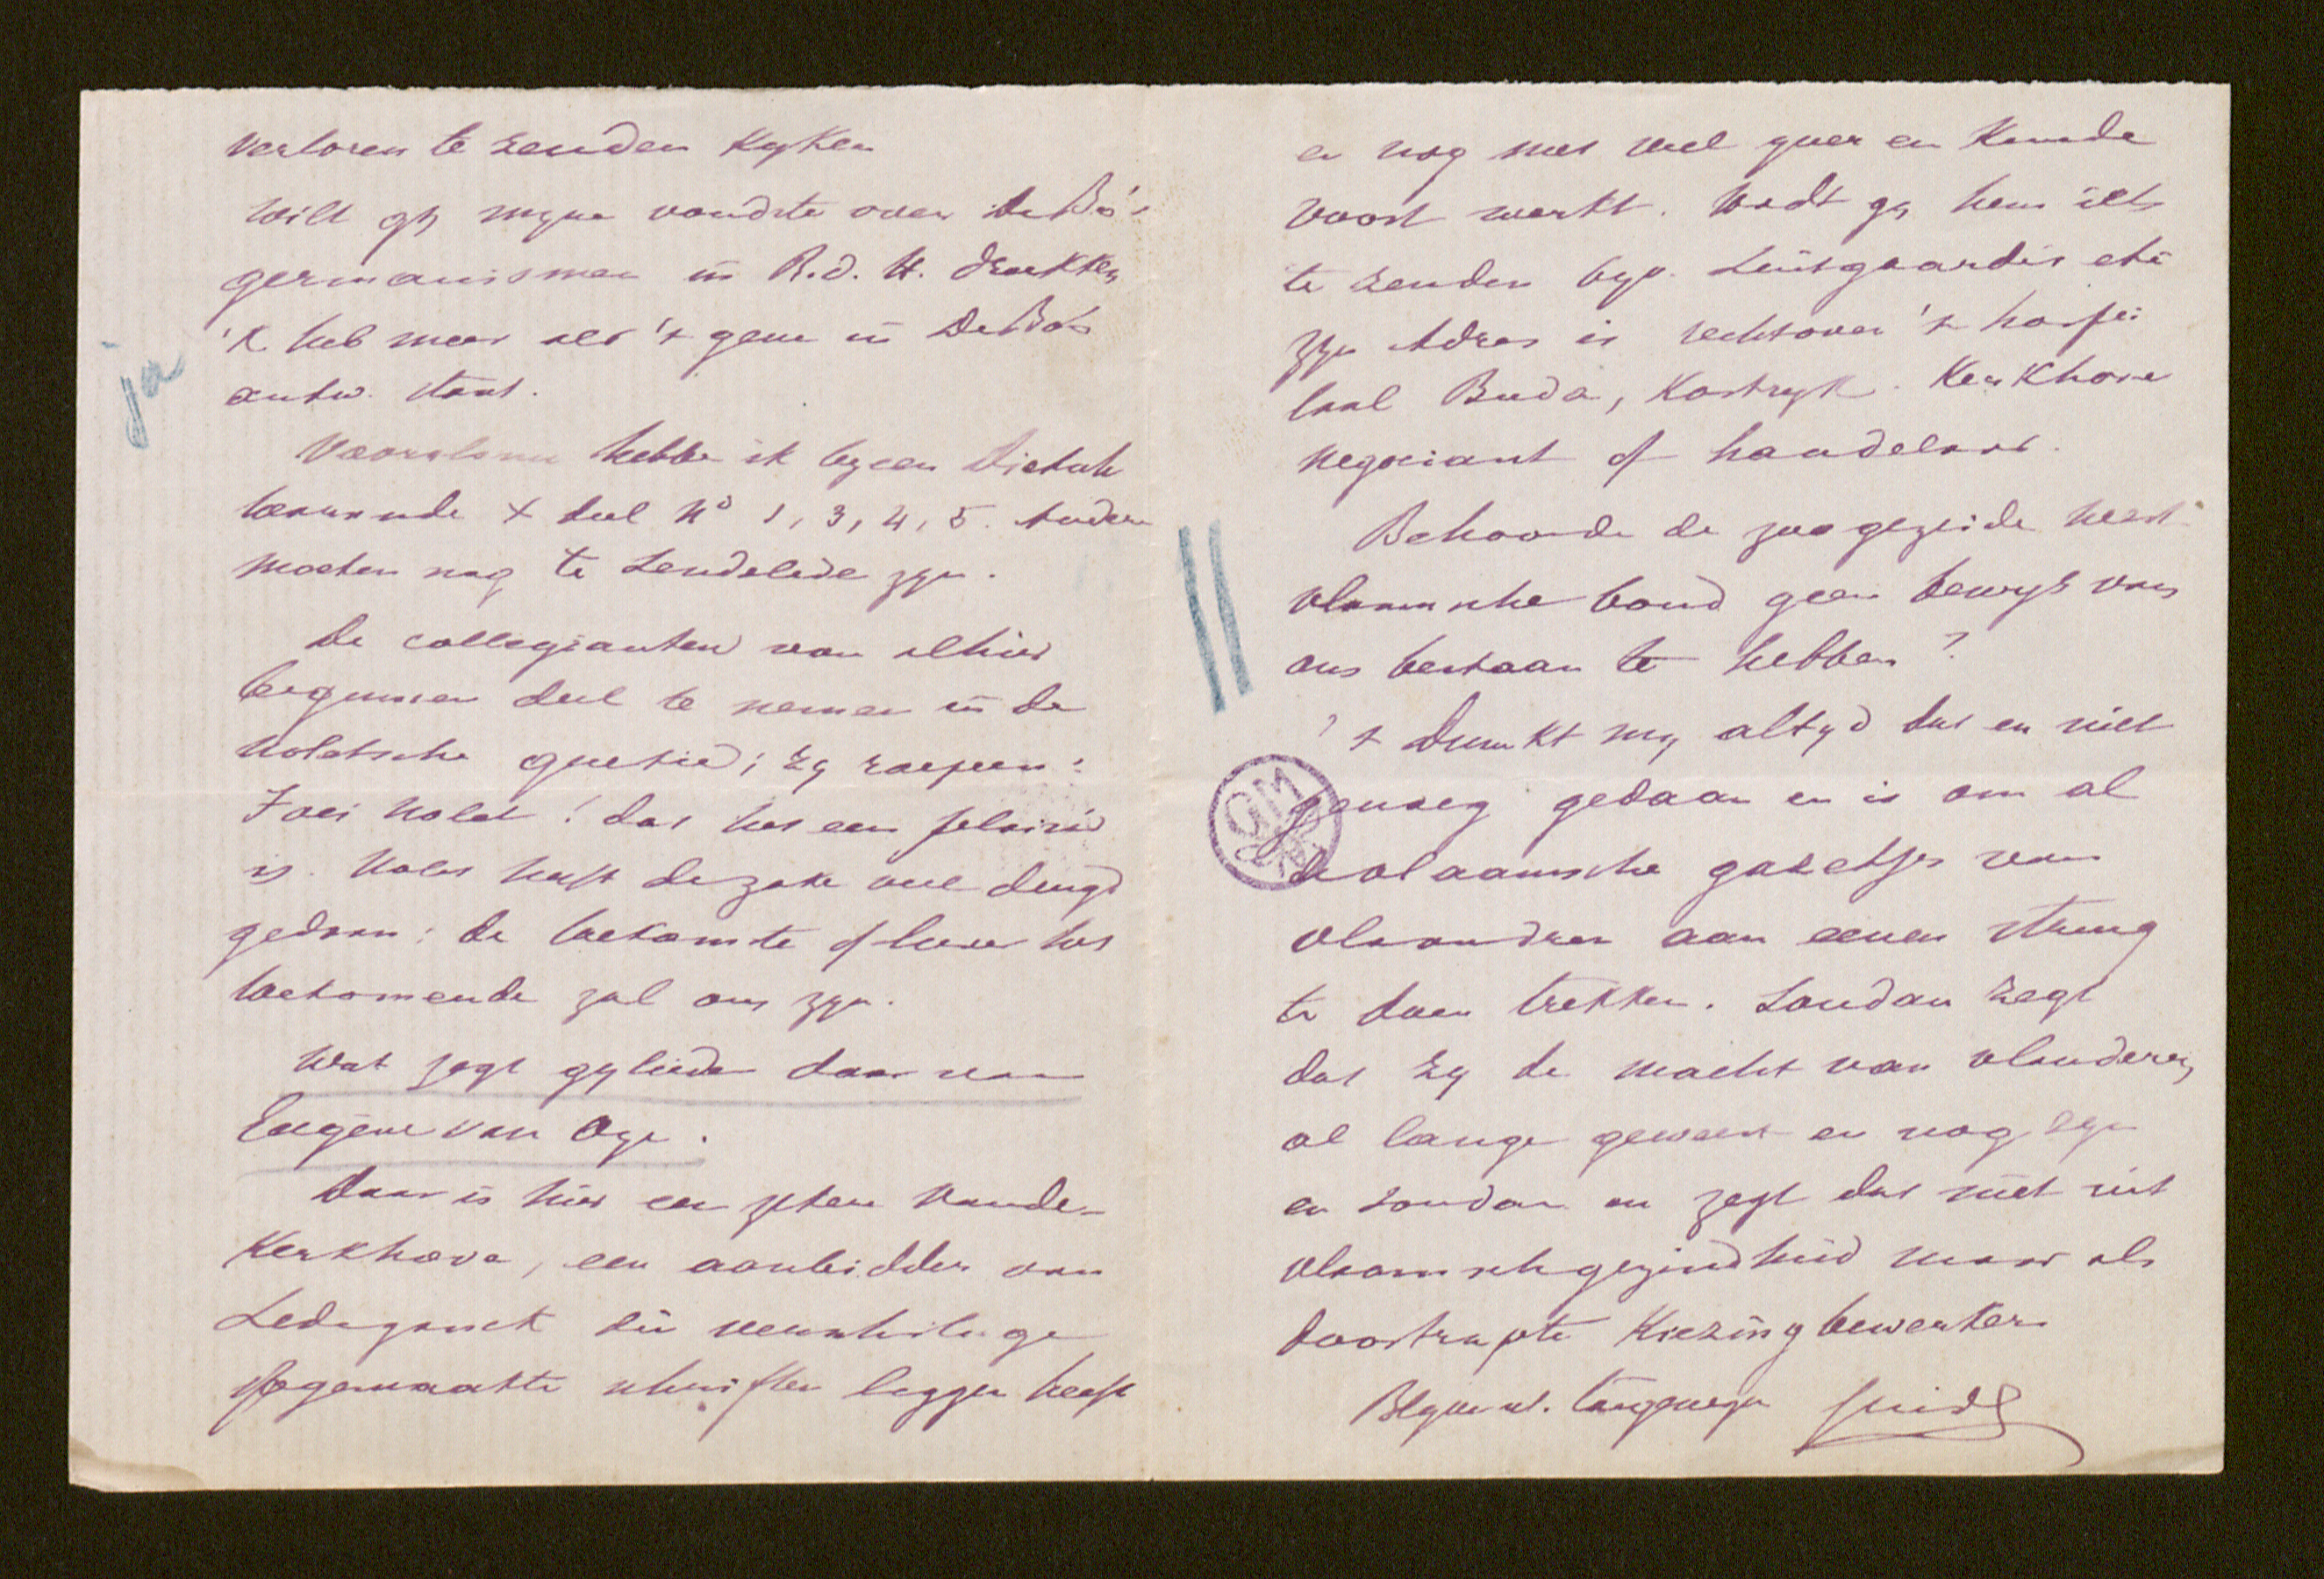 verloren te zenden kyken
Wilt gy myne vondste over De Bo's
germanismen in R.d.H. drukken
'k heb meer als 't gene in De Bo's
ja
antw. staat.
Vooralsnu hebbe ik byeen
X deel No 1, 3, 4, 5. Andere
moeten nog te Lendelede zyn.
De collegianten van alhier
beginnen deel te nemen in de
Noletsche questie; zy roepen:
Foei Nolet! dat het een plaisier
is. Nolet heeft de zake veel deugd
gedaan: de toekomste of liever het
toekomende zal ons zyn.
Wat zegt gylieden daar van
Eugène van Oye.
Daar is hier een zekere Vande-
Kerkhove, een aanbidder van
Ledeganck die verscheidige
opgemaakte schriften liggen heeft
en nog met veel yver en kunde
voort werkt. Wordt gy hem iets
te zenden byv. Leutgaardis etc
zyn Adres is rechtover 't hospi
taal Buda, Kortryk. Kerkhove
negociant of handelaar.
Behoorde de zoogezeide West
vlaamsche bond geen bewys van
ons bestaan te hebben?
't Dunkt my altyd dat er niet
genoeg gedaan en is om al
de vlaamsche gazetjes van
vlaandren aan eenen streng
te doen trekken. Loudan zegt
dat zy de macht van vlanderen
al lange geweest en nog zyn
en Loudan en zegt dat niet uit
vlaamschgezindheid maar als
doortrapte kiezingbewerker
Guido